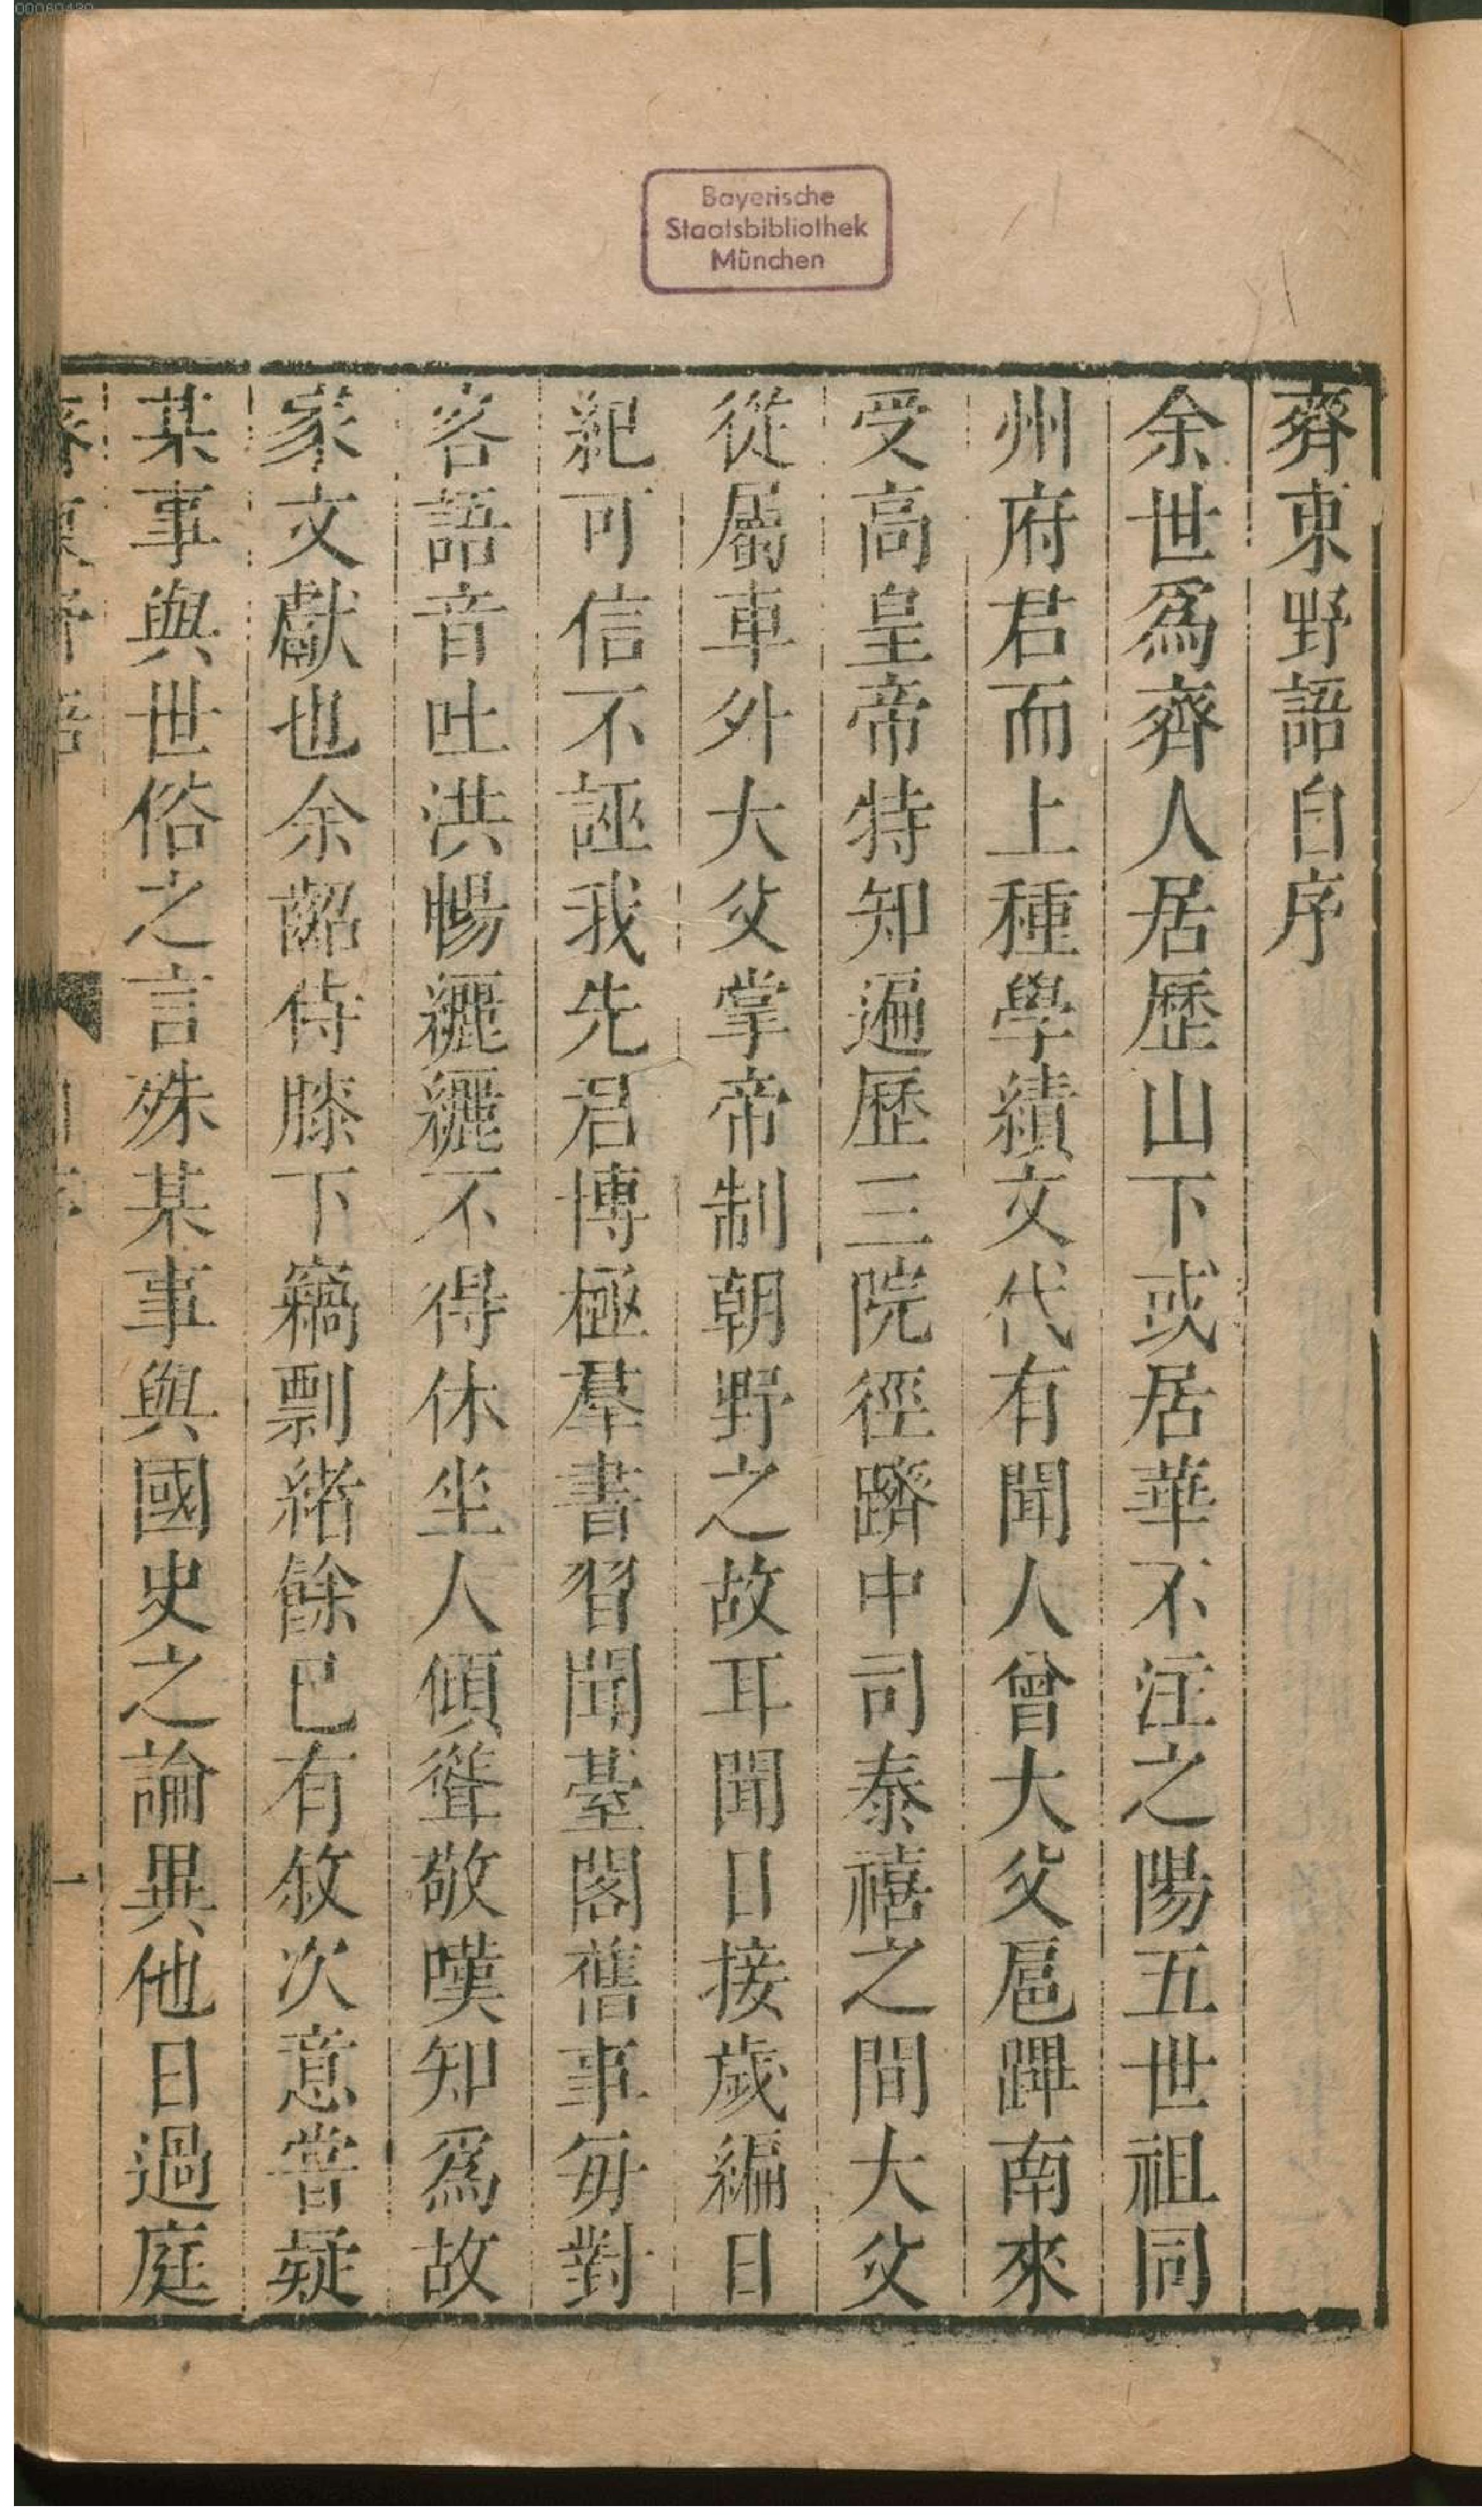 00060430
Bayerische
Staatsbibliothek
München
齊東野語自序
余世爲齊人居歷山下或居華不注之陽五世祖同
州府君而上種學績文代有聞人曾大父扈蹕南來
受高皇帝特知遍歷三院徑躋中司泰禧之間大父
從屬車外大父掌帝制朝野之故耳聞日接歲編日
紀可信不誣我先君博極羣書習聞臺閣舊事每對
客語音吐洪暢纚纚不得休坐人傾聳敬嘆知爲故
家文獻也余齠侍膝下竊剽緒餘已有敘次意嘗疑
某事與世俗之言殊某事與國史之論異他日過庭
一